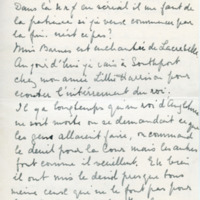 Dans la
au serial il me faut de
la patience si je veux commencer par
la fin. n'est ce pas?
Miss Barnes est enchantée de
Aujourd'hui je vais à Southport
chez mon amie Harrison pour
écouter l'enterrement du roi.
Il ya longtemps qu'un roi d'angleterre
ne soit morte on se demandait ce que
les gens allaient faire, on commande
le deuil pour la Cour mais les autres
font comme il veuillent. Eh bien
il ont mis le deuil presque tous
même ceux qui ne le font pas pour